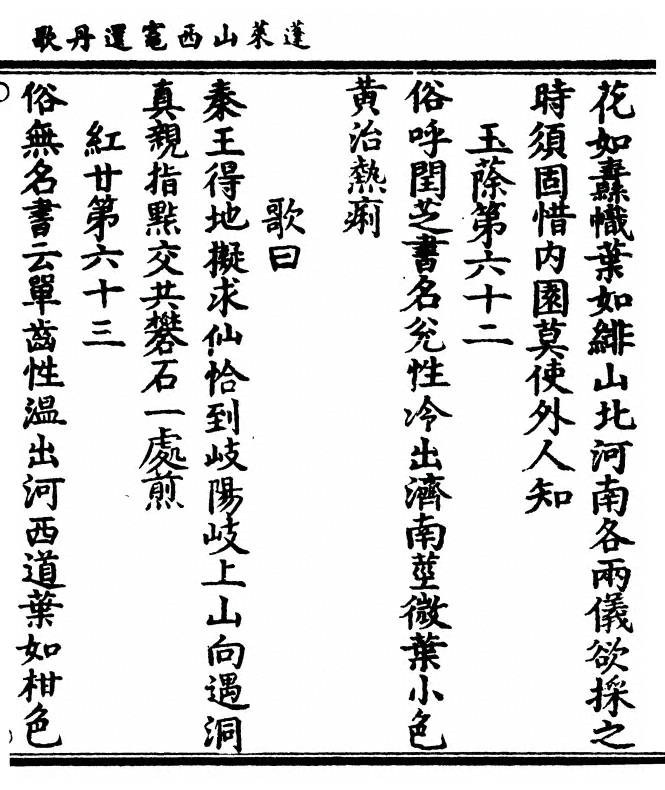 蓬萊山西竈還丹歌
花如纛幟葉如緋山北河南各兩儀欲採之
時須固惜内園莫使外人知
玉蒢第六十二
俗呼閏芝書名兊性冷出濟南莖微葉小色
黃治熱痢
歌曰
秦王得地擬求仙恰到岐陽岐上山向遇洞
真親指點交共礬石一處煎
紅廿第六十三
俗無名書云單齒性溫出河西道葉如柑色